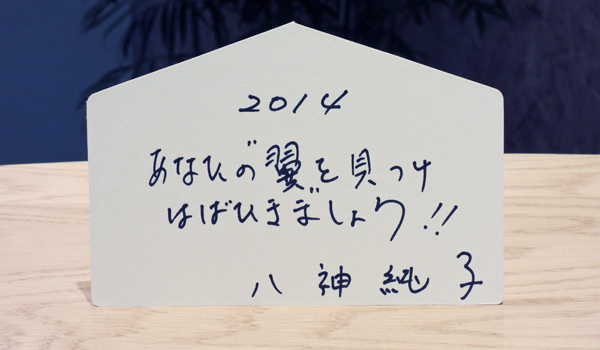 2014
あなたの"翼"を見つけ
はばたきましょう!!
八神純子